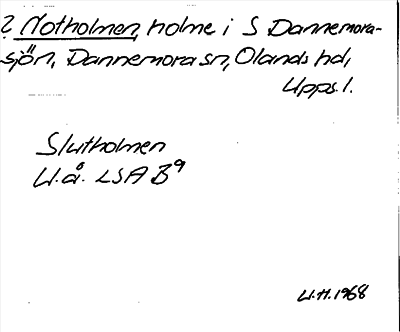 ? Notholmen, holme i S Dannemora-
sjön, Dannemora sn, Olands hd,
Upps. l.
Slutholmen
U.å. LSA B9
U.H. 1968